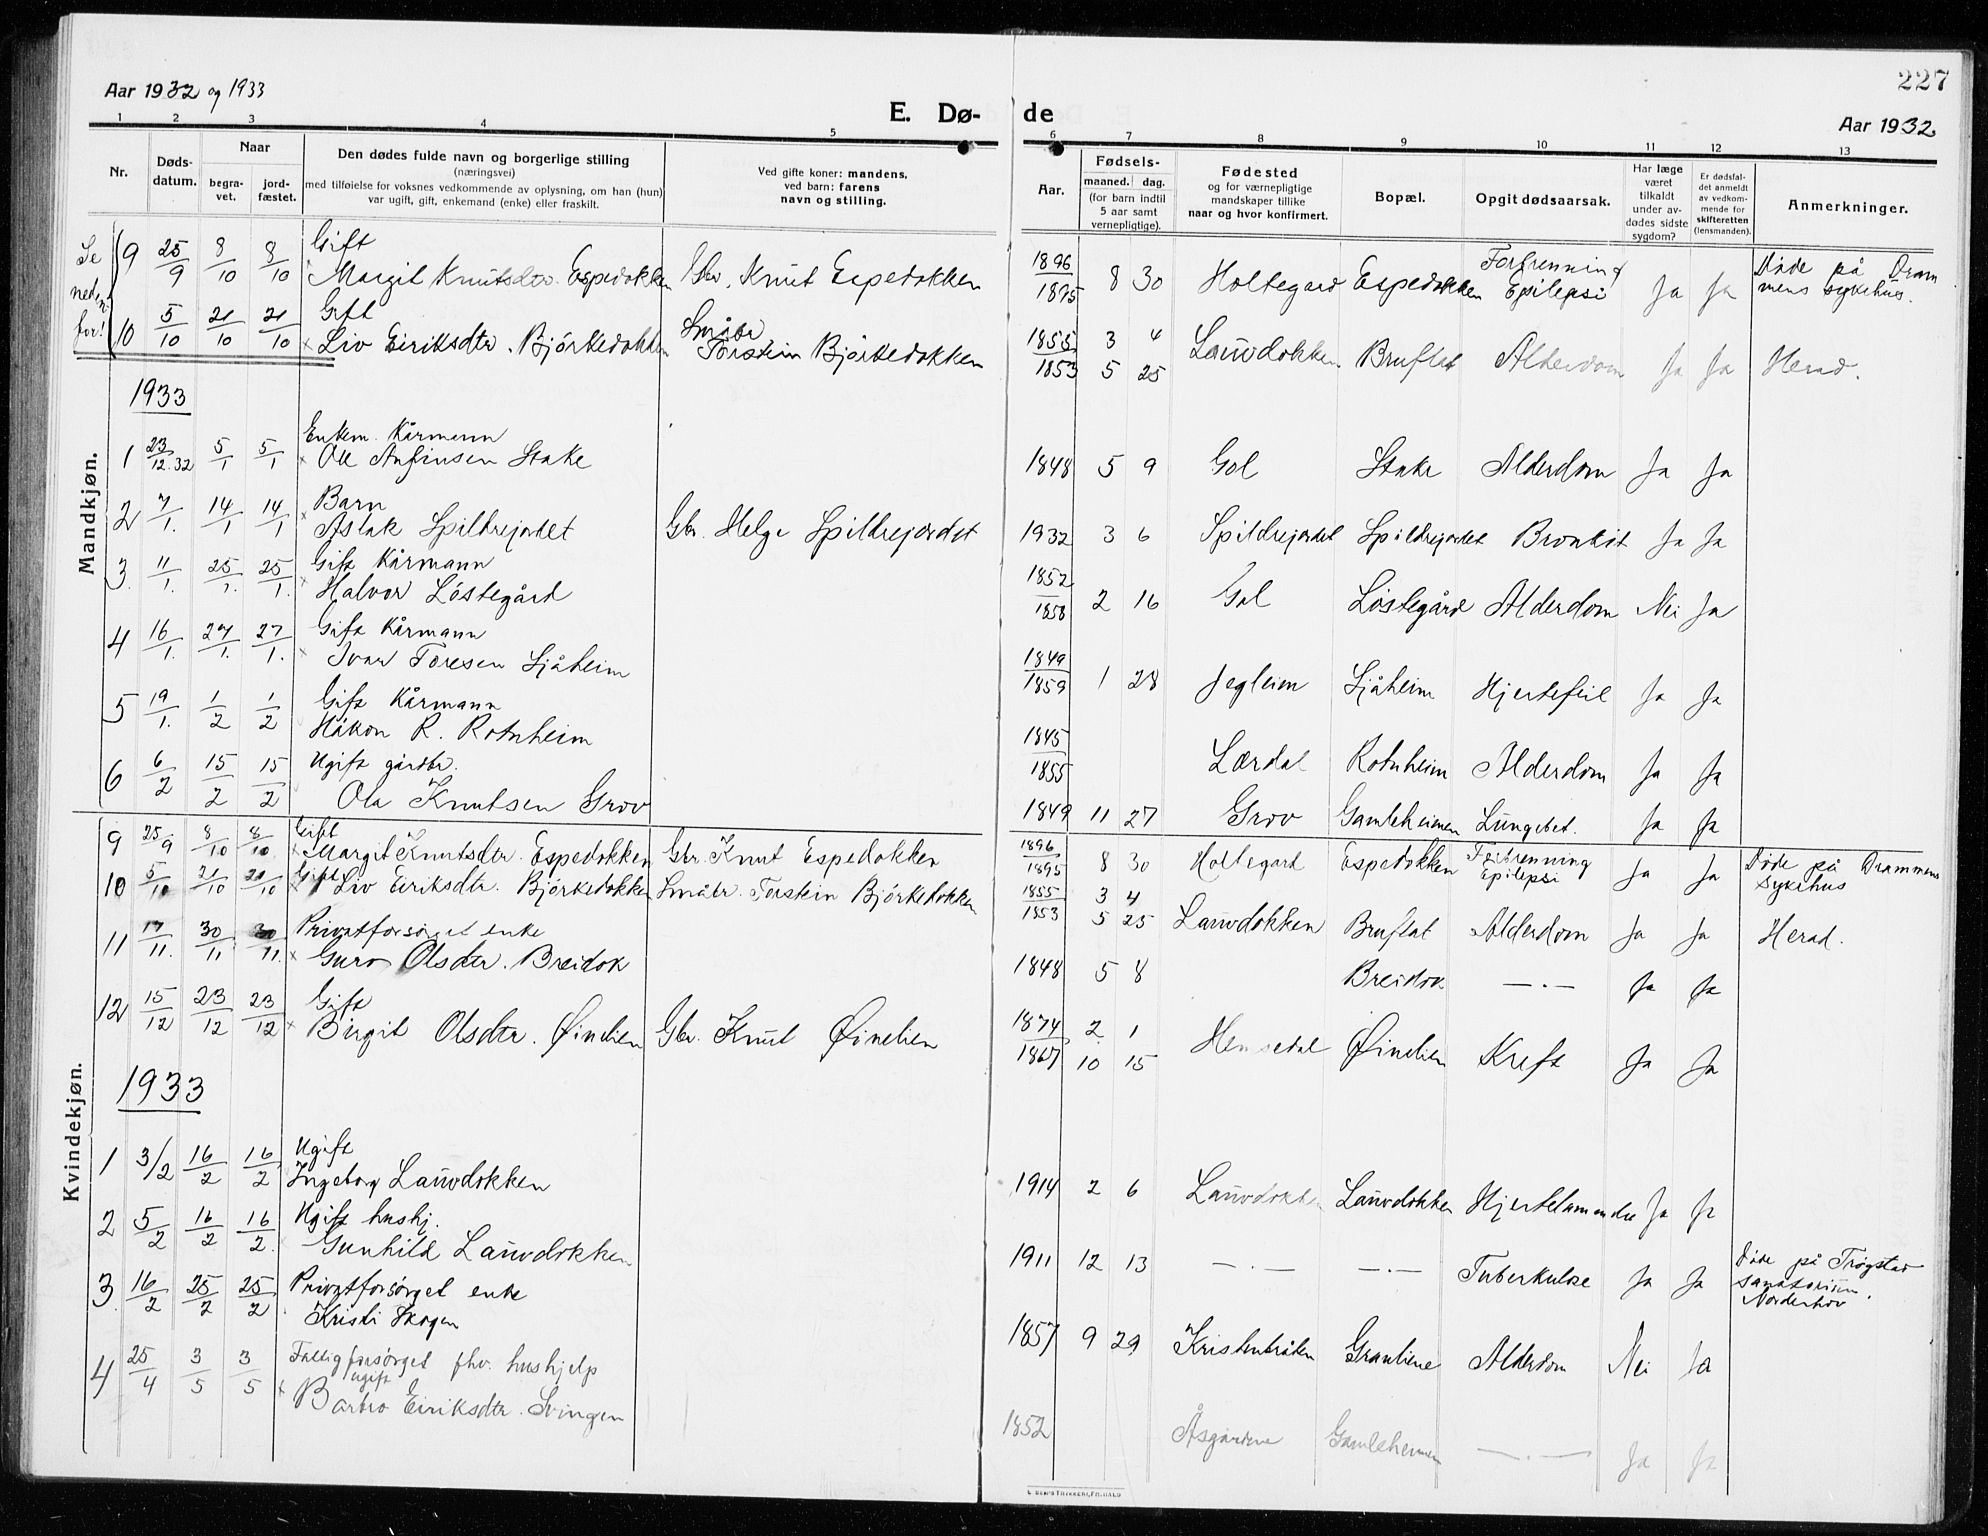 227
Aar 1932 og 1933
E. Dø- de
Aar 1932
1 2 3 4 5 6 7 8 9 10 11 12 13
Nr.
Døds-datum.
Naar
begra-vet.
jord-fæstet.
Den dødes fulde navn og borgerlige stilling
(næringsvei)
med tilføielse for voksnes vedkommende av oplysning, om han (hun)
var ugift, gift, enkemand (enke) eller fraskilt.
Ved gifte koner: mandens,
ved barn: farens
navn og stilling.
Aar.
Fødsels-
maaned. dag.
(for barn indtil
5 aar samt
vernepligtige).
Fødested
og for værnepligtige
mandskaper tillike
naar og hvor konfirmert.
Bopæl.
Opgit dødsaarsak.
Har læge
været
tilkaldt
under av-
dødes sidste
sygdom?
Er dødsfal-
det anmeldt
av vedkom-
mende for
skifteretten
(lensmanden).
Anmerkninger.
Se nedenfor!
9 25/9 8/10 8/10 Gift
Margit Knutsdtr. Espedokken Gbr. Knut Espedokken 1896/1895 8 30 Holtegard Espedokken Forbrenning Epilepsi Ja Ja Døde på Drammens sykehus.
10 5/10 21/10 21/10 Gift
Liv Eiriksdtr. Bjørkedokken Småbr. Torstein Bjørkedokken 1855 3 4 Lauvdokken Bruflat Alderdom Ja Ja Herad.
1853 5 25
1933
Mandkjøn.
1 23/12.32 5/1 5/1 Enkem. Kårmann
Ole Anfinsen Stake 1848 5 9 Gol Stake Alderdom Ja Ja
2 7/1. 14/1 14/1 Barn
Aslak Spildrejordet Gbr. Helge Spildrejordet 1932 3 6 Spildrejordet Spildrejordet Bronkit Ja Ja
3. 11/1. 25/1. 25/1. Gift Kårmann
Halvor Løstegård 1852/1858 2 16 Gol Løstegård Alderdom Nei Ja
4 16/1. 27/1. 27/1. Gift Kårmann
Ivar Toresen Sjåheim 1849/1859 1 28 Jegleim Sjåheim Hjertefeil Ja Ja
5 19/1. 1/2 1/2 Gift Kårmann
Håkon R. Rotnheim 1845/1855 Lærdal Rotnheim Alderdom Ja Ja
6 6/2 15/2 15/2 Ugift gårdbr.
Ola Knutsen Grov 1849 11 27 Grov Gamleheimen Lungebet. Ja Ja
Kvindekjøn.
9 25/9 8/10 8/10 Gift
Margit Knutsdtr. Espedokken Gbr. Knut Espedokken 1896/1895 8 30 Holtegard Espedokken Forbrenning Epilepsi Ja Ja Døde på Drammens sykehus
10 5/10 21/10 21/10 Gift Liv Eiriksdtr. Bjørkedokken Småbr. Torstein Bjørkedokken 1855 3 4
1853 5 25 Lauvdokken Bruflat Alderdom Ja Ja Herad.
11 17/11. 30/11 30/11. Privatforsørget enke
Guro Olsdtr. Breidok 1848 5 8 Breidok —·— Ja Ja
12 15/12 23/12 23/12 Gift
Birgit Olsdtr. Øinelien Gbr. Knut Øinelien 1874 2 1 Hemsedal Øinelien Kreft Ja Ja
1867 10 15
1933
1 3/2 16/2 16/2 Ugift
Ingeborg Lauvdokken 1914 2 6 Lauvdokken Lauvdokken Hjertelammelse Ja Ja
2 5/2 16/2 16/2. Ugift hushj.
Gunhild Lauvdokken 1911 12 13 —·— —·— Tuberkulose Ja Ja Døde på Trøgstad sanatorium. Norderhov
3. 16/2 25/2 25/2 Privatforsørget enke
Kristi Skogen 1857 9 29 Kristenbråten Grønliene Alderdom Nei Ja
4 25/4 3/5 3/5 Fattigforsørget fhv. hushjelp
ugift
Barbro Eiriksdtr. Svingen 1852 Åsgårdene Gamleheimen —·— Ja Ja